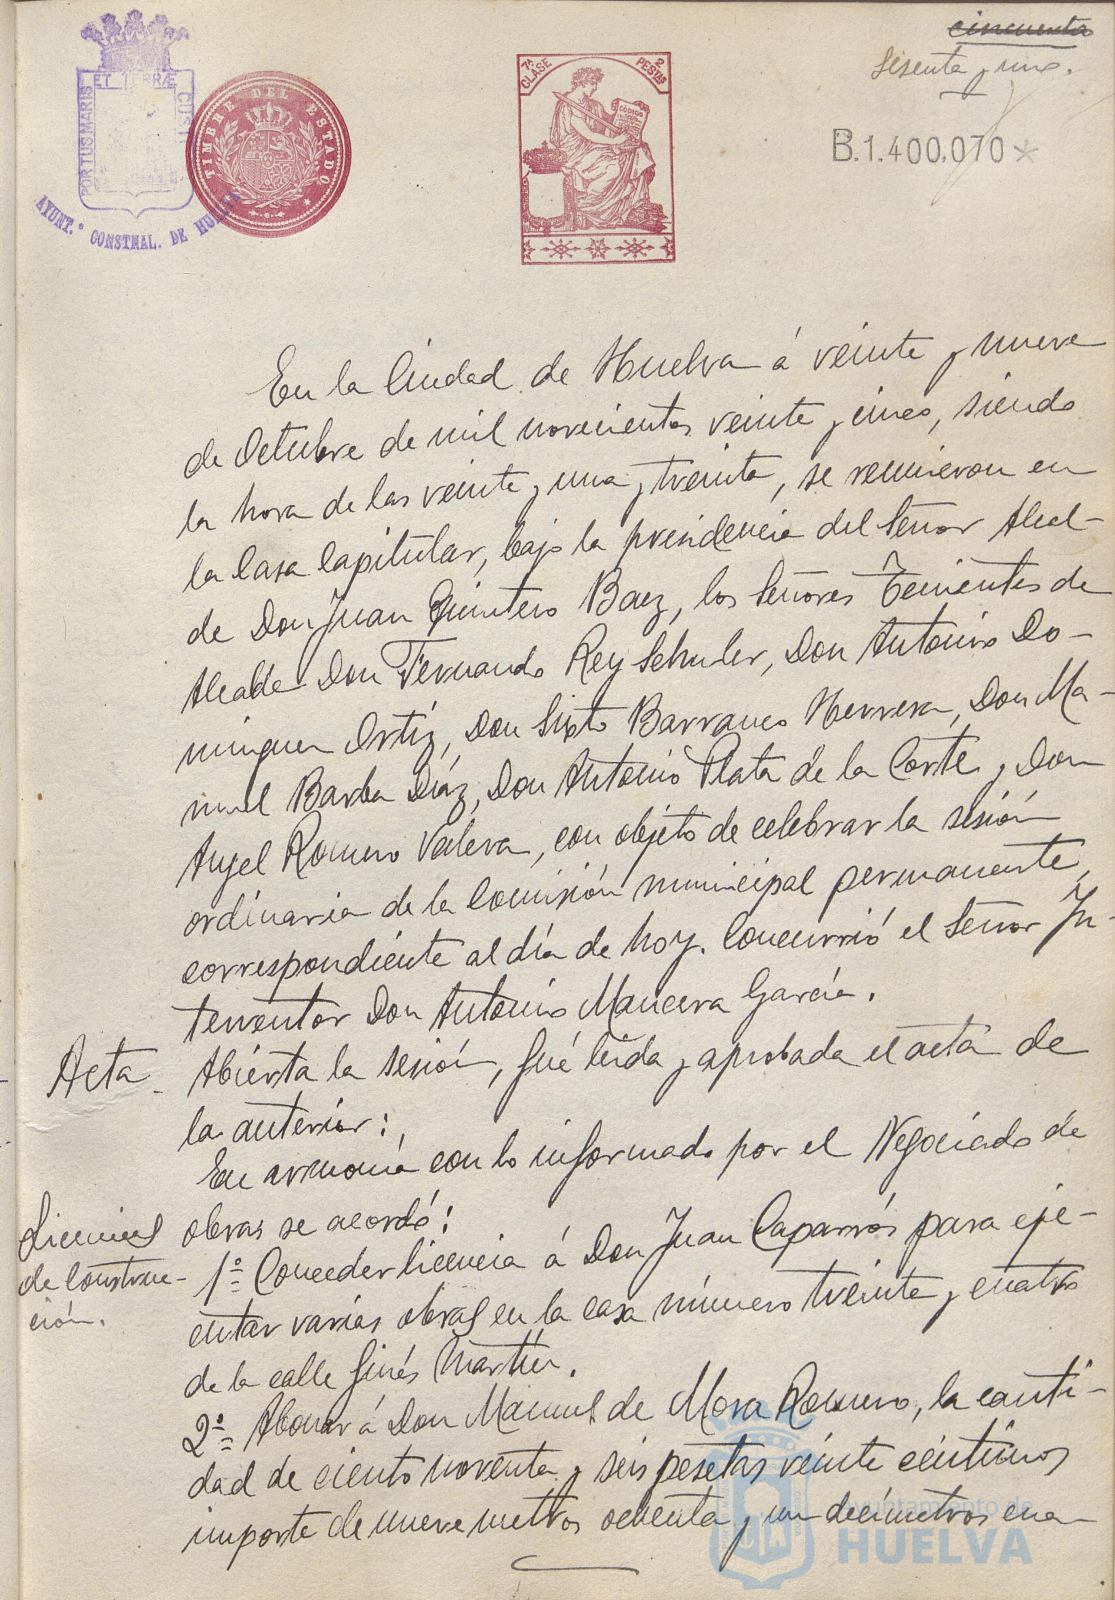 cincuenta
Sesenta y uno.
ET TERRÆ
PORTUS MARIS
CUST
AYUNT.º CONSTNAL. DE HUELVA
TIMBRE DEL ESTADO
7ª CLASE
2 PESTAS
CÓDIGO
B.1.400,070*
En la Ciudad de Huelva á veinte y nueve
de Octubre de mil novecientos veinte y cinco, siendo
la hora de las veinte y una y treinta, se reunieron en
la Casa Capitular, bajo la presidencia del Señor Alcal-
de Don Juan Quintero Baez, los Señores Tenientes de
Alcalde Don Fernando Rey Schuler, Don Antonio Do-
minguez Ortíz, Don Sixto Barranco Herrera, Don Ma-
nuel Barba Díaz, Don Antonio Plata de la Corte y Don
Angel Romero Valera, con objeto de celebrar la sesión
ordinaria de la Comisión municipal permanente,
correspondiente al día de hoy. Concurrió el Señor In-
terventor Don Antonio Mancera García.
Acta. Abierta la sesión, fué leida y aprobada el acta de
la anterior:
En armonía con lo informado por el Negociado de
obras se acordó:
Licencias
de construc-
ción.
1º Conceder licencia á Don Juan Caparrós para eje-
cutar varias obras en la casa número treinta y cuatro
de la calle Ginés Martín.
2º Abonar á Don Manuel de Mora Romero, la canti-
dad de ciento noventa y seis pesetas veinte céntimos
importe de nueve metros ochenta y un decímetros cua-
Ayuntamiento de
HUELVA